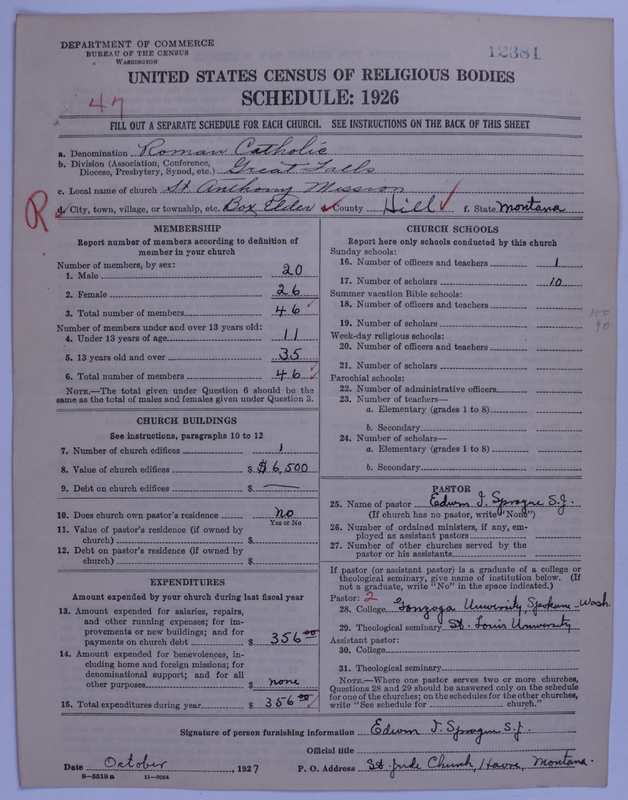 DEPARTMENT OF COMMERCE
BUREAU OF THE CENSUS
WASHINGTON
12381
UNITED STATES CENSUS OF RELIGIOUS BODIES
47
SCHEDULE: 1926
FILL OUT A SEPARATE SCHEDULE FOR EACH CHURCH. SEE INSTRUCTIONS ON THE BACK OF THIS SHEET
a. Denomination Roman Catholic
b. Division (Association, Conference, Diocese, Presbytery, Synod, etc.) Great Falls
c. Local name of church St. Anthony Mission
R
d. City, town, village, or township, etc. Box Elder e. County Hill f. State Montana
MEMBERSHIP
Report number of members according to definition of
member in your church
Number of members, by sex:
1. Male 20
2. Female 26
3. Total number of members 46
Number of members under and over 13 years old:
4. Under 13 years of age 11
5. 13 years old and over 35
6. Total number of members 46
NOTE.—The total given under Question 6 should be the
same as the total of males and females given under Question 3.
CHURCH BUILDINGS
See instructions, paragraphs 10 to 12
7. Number of church edifices 1
8. Value of church edifices $ $6,500
9. Debt on church edifices $ —
10. Does church own pastor's residence no
Yes or No
11. Value of pastor's residence (if owned by
church) $
12. Debt on pastor's residence (if owned by
church) $
EXPENDITURES
Amount expended by your church during last fiscal year
13. Amount expended for salaries, repairs,
and other running expenses; for im-
provements or new buildings; and for
payments on church debt $ 356 00
14. Amount expended for benevolences, in-
cluding home and foreign missions; for
denominational support; and for all
other purposes $ none
15. Total expenditures during year $ 356 00
CHURCH SCHOOLS
Report here only schools conducted by this church
Sunday schools:
16. Number of officers and teachers 1
17. Number of scholars 10
Summer vacation Bible schools:
18. Number of officers and teachers
19. Number of scholars
Week-day religious schools:
20. Number of officers and teachers
21. Number of scholars
Parochial schools:
22. Number of administrative officers
23. Number of teachers—
a. Elementary (grades 1 to 8)
b. Secondary
24. Number of scholars—
a. Elementary (grades 1 to 8)
b. Secondary
PASTOR
25. Name of pastor Edwin J. Sprague S.J.
(If church has no pastor, write "None")
26. Number of ordained ministers, if any, em-
ployed as assistant pastors
27. Number of other churches served by the
pastor or his assistants
If pastor (or assistant pastor) is a graduate of a college or
theological seminary, give name of institution below. (If
not a graduate, write "No" in the space indicated.)
Pastor: 2
28. College Gonzaga University, Spokane Wash.
29. Theological seminary St. Louis University
Assistant pastor:
30. College
31. Theological seminary
NOTE.—Where one pastor serves two or more churches,
Questions 28 and 29 should be answered only on the schedule
for one of the churches; on the schedules for the other churches,
write "See schedule for church."
Signature of person furnishing information Edwin J. Sprague S.J.
Official title
Date October, 1927 P. O. Address St. Jude Church, Havre, Montana.
8—5518a 11—9084